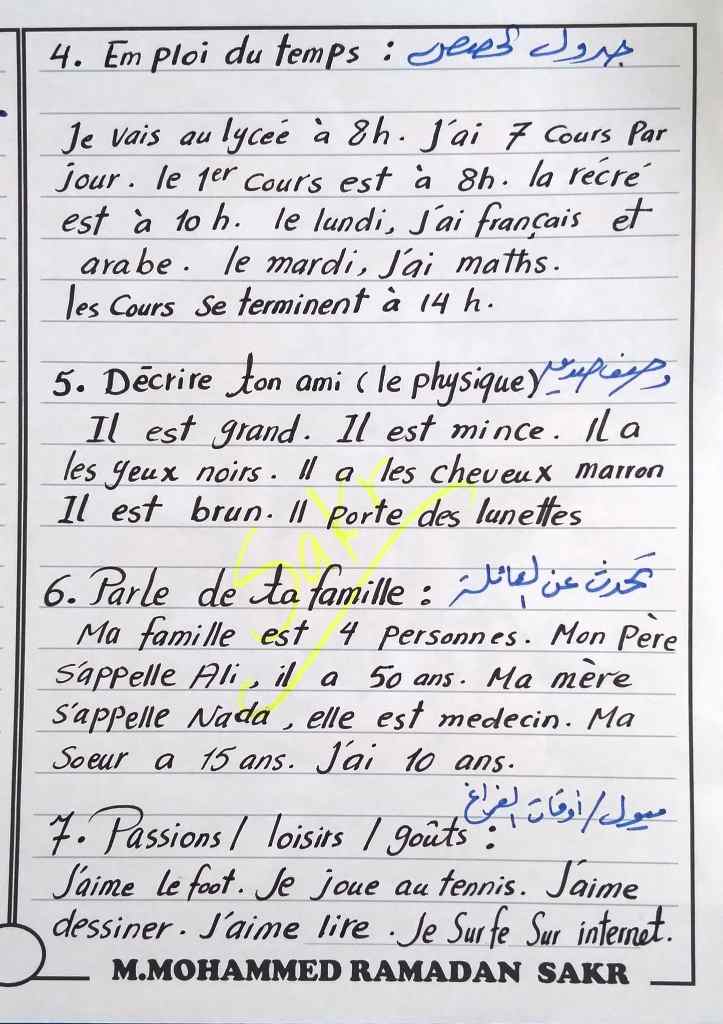 4. Emploi du temps : جدول الحصص
Je vais au lyceé à 8h. J'ai 7 Cours Par
jour. le 1er Cours est à 8h. la récré
est à 10 h. le lundi, J'ai français et
arabe. le mardi, J'ai maths.
les Cours se terminent à 14 h.
5. Décrire ton ami (le physique) وصف صديق
Il est grand. Il est mince. Il a
les yeux noirs. Il a les cheveux marron
Il est brun. Il porte des lunettes
Sakr
6. Parle de ta famille : تحدث عن العائلة
Ma famille est 4 Personnes. Mon Père
s'appelle Ali, il a 50 ans. Ma mère
s'appelle Nada, elle est medecin. Ma
Soeur a 15 ans. J'ai 10 ans.
7. Passions / loisirs / goûts : ميول / أوقات الفراغ
J'aime le foot. Je joue au tennis. J'aime
dessiner. J'aime lire. Je Surfe Sur internet.
M.MOHAMMED RAMADAN SAKR